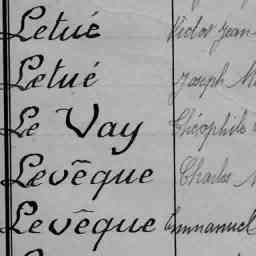 Letué Victor Jean
Letué Joseph
Le Vay Théophile
Levêque Charles
Levêque Emmanuel